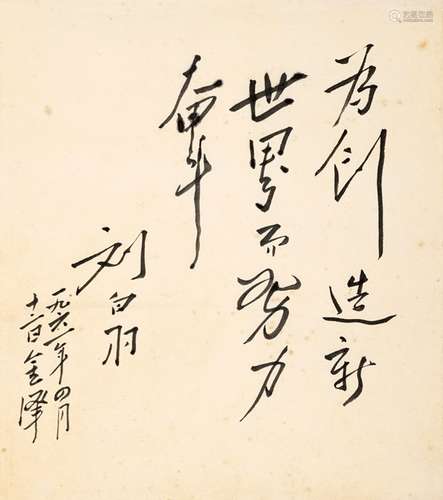 为创造新
世界而努力
奋斗
刘白羽
一九六一年四月
十日金泽